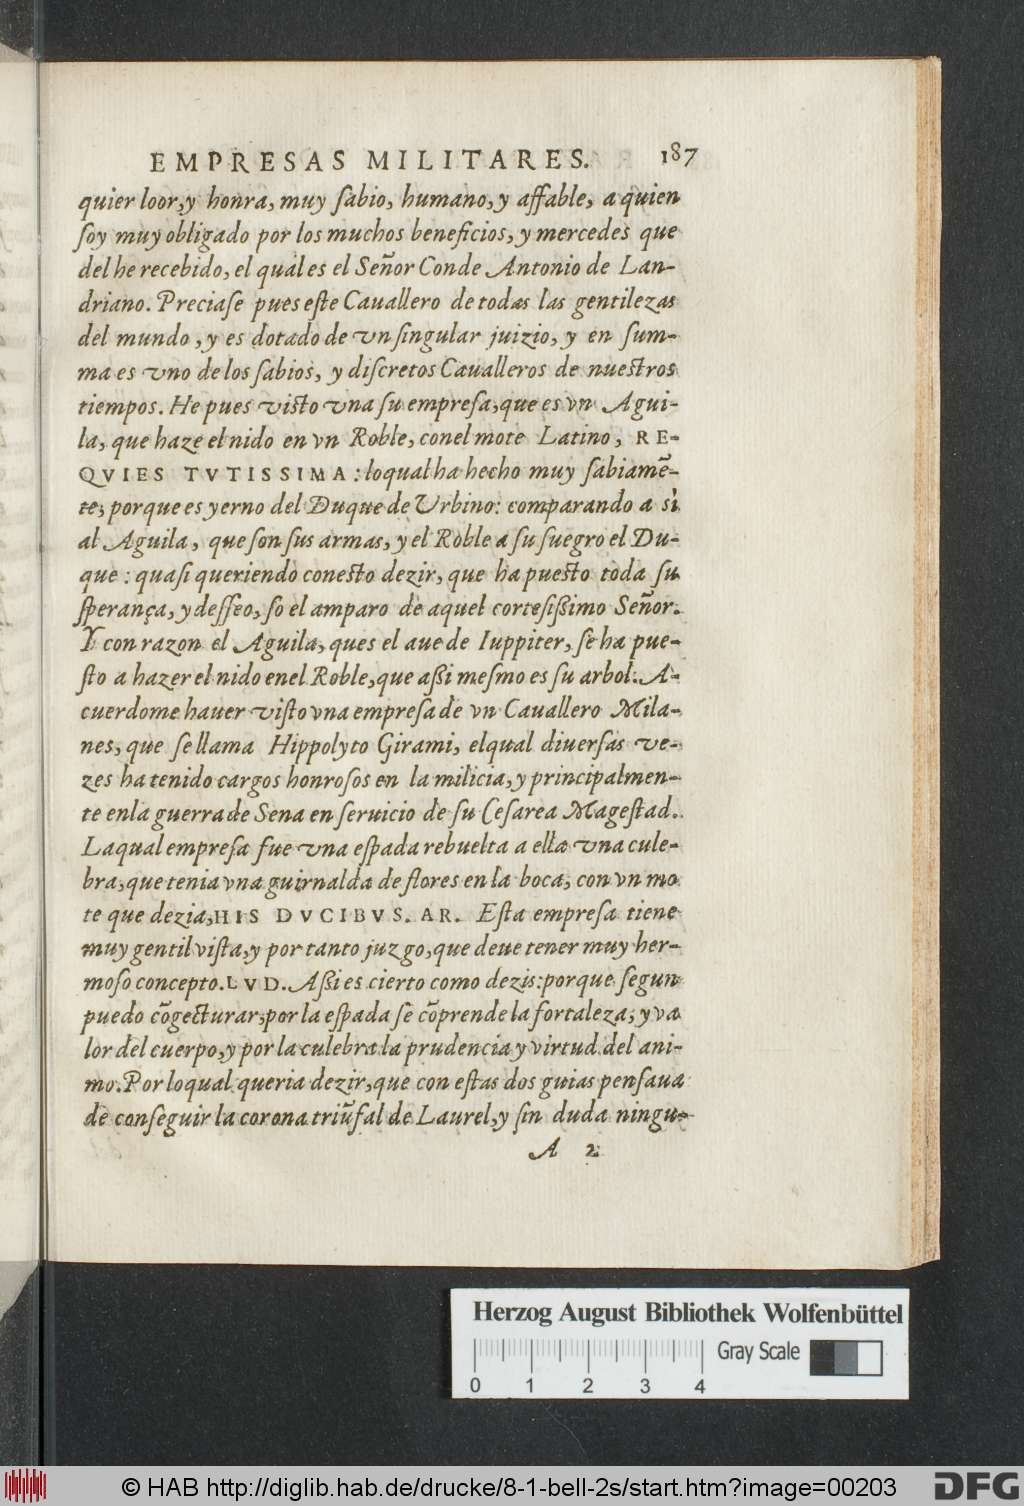 EMPRESAS MILITARES. 187
quier loor, y honra, muy ſabio, humano, y affable, a quien
ſoy muy obligado por los muchos beneficios, y mercedes que
del he recebido, el qual es el Señor Conde Antonio de Lan-
driano. Preciaſe pues eſte Cauallero de todas las gentilezas
del mundo, y es dotado de vn ſingular juizio, y en ſum-
ma es vno de los ſabios, y diſcretos Caualleros de nueſtros
tiempos. He pues viſto vna ſu empreſa, que es vn Agui-
la, que haze el nido en vn Roble, conel mote Latino, RE-
QVIES TVTISSIMA: loqual ha hecho muy ſabiamẽ-
te, porque es yerno del Duque de Vrbino: comparando a sì
al Aguila, que ſon ſus armas, y el Roble a ſu ſuegro el Du-
que: quaſi queriendo coneſto dezir, que ha pueſto toda ſu
ſperança, y deſſeo, ſo el amparo de aquel corteſißimo Señor.
Y con razon el Aguila, ques el aue de Iuppiter, ſe ha pue-
ſto a hazer el nido enel Roble, que aßi meſmo es ſu arbol. A-
cuerdome hauer viſto vna empreſa de vn Cauallero Mila-
nes, que ſe llama Hippolyto Girami, elqual diuerſas ve-
zes ha tenido cargos honroſos en la milicia, y principalmen-
te enla guerra de Sena en ſeruicio de ſu Ceſarea Mageſtad.
Laqual empreſa fue vna eſpada rebuelta a ella vna cule-
bra, que tenia vna guirnalda de flores en la boca, con vn mo
te que dezia, HIS DVCIBVS. AR. Eſta empreſa tiene
muy gentil viſta, y por tanto juzgo, que deue tener muy her-
moſo concepto. LVD. Aßi es cierto como dezis: porque ſegun
puedo cõgecturar, por la eſpada ſe cõprende la fortaleza, y va
lor del cuerpo, y por la culebra la prudencia y virtud del ani-
mo. Por loqual queria dezir, que con eſtas dos guias penſaua
de conſeguir la corona triũfal de Laurel, y ſin duda ningu-
A 2
Herzog August Bibliothek Wolfenbüttel
Gray Scale
0 1 2 3 4
© HAB http://diglib.hab.de/drucke/8-1-bell-2s/start.htm?image=00203
DFG